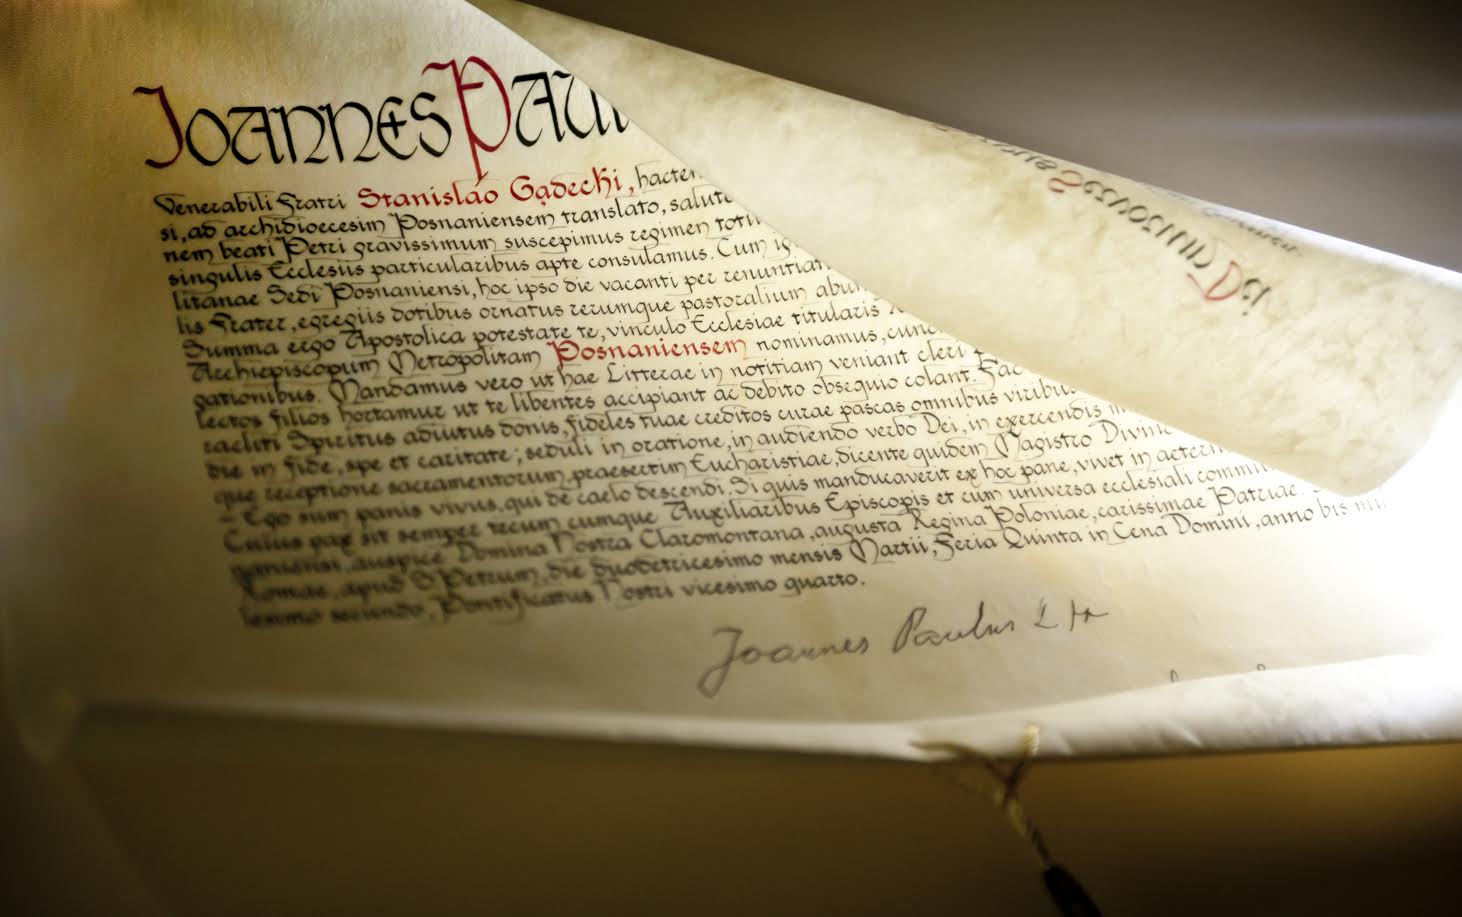 JOANNES PAUL
Venerabili Fratri Stanislao Gądecki, hacten
si, ad archidioecesim Posnaniensem translato, salute
nem beati Petri gravissimum suscepimus regimen toti
singulis Ecclesiis particularibus apte consulamus. Cum ig
litanae Sedi Posnaniensi, hoc ipso die vacanti per renuntian
lis Frater, egregiis dotibus ornatus rerumque pastoralium abu
Summa ergo Apostolica potestate te, vinculo Ecclesiae titularis
Archiepiscopum Metropolitam Posnaniensem nominamus, cunc
gationibus. Mandamus vero ut hae Litterae in notitiam veniant cleri
lectos filios hortamur ut te libentes accipiant ac debito obsequio colant. Fac
racliti Spiritus adiutus donis, fideles tuae creditos curae pascas omnibus viribu
die in fide, spe et caritate; seduli in oratione, in audiendo verbo Dei, in exercendis
que receptione sacramentorum, praesertim Eucharistiae, dicente quidem Magistro Divin
- Ego sum panis vivus, qui de caelo descendi. Si quis manducaverit ex hoc pane, vivet in aetern
Cuius pax sit semper tecum cumque Auxiliaribus Episcopis et cum universa ecclesiali comm
gnaniensi, auspice Domina Nostra Claromontana, augusta Regina Poloniae, carissimae Patriae.
Romae, apud S. Petrum, die duodetricesimo mensis Martii, Feria Quinta in Cena Domini, anno bis mil
lesimo secundo, Pontificatus Nostri vicesimo quarto.
Joannes Paulus II